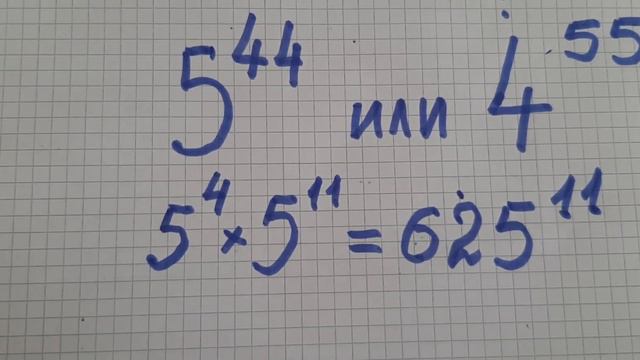 5⁴⁴ или 4⁵⁵
5⁴ × 5¹¹ = 625¹¹